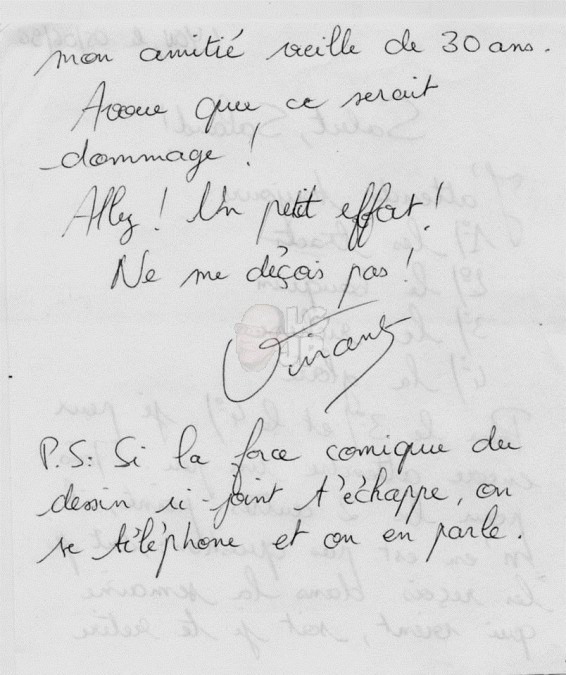 mon amitié vieille de 30 ans.
Avoue que ce serait
dommage !
Allez ! Un petit effort !
Ne me déçois pas !
P.S: Si la force comique du
dessin ci-joint t'échappe, on
se téléphone et on en parle.